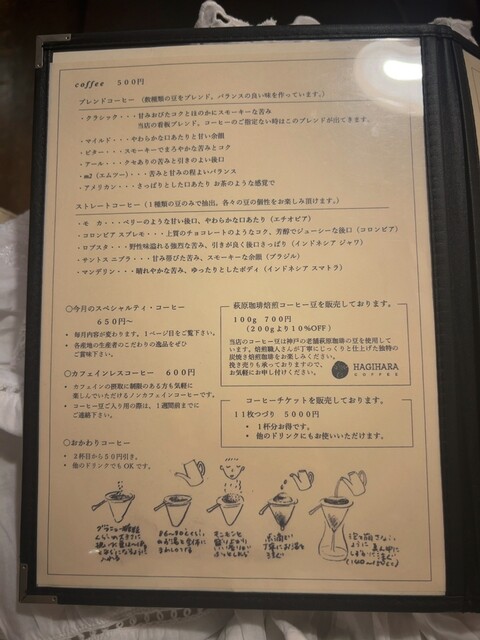 coffee 500円
ブレンドコーヒー (数種類の豆をブレンド。バランスの良い味を作っています。)
・クラシック・・・甘みおびたコクとほのかにスモーキーな苦み
当店の看板ブレンド。コーヒーのご指定ない時はこのブレンドが出てきます。
・マイルド・・・やわらかな口あたりと甘い余韻
・ビター・・・スモーキーでまろやかな苦みとコク
・アール・・・クセありの苦みと引きのよい後口
・m2 (エムツー)・・・苦みと甘みの程よいバランス
・アメリカン・・・さっぱりとした口あたり お茶のような感覚で
ストレートコーヒー (1種類の豆のみで抽出。各々の豆の個性をお楽しみ頂けます。)
・モカ・・・ベリーのような甘い後口、やわらかな口あたり (エチオピア)
・コロンビア スプレモ・・・上質のチョコレートのようなコク、芳醇でジューシーな後口 (コロンビア)
・ロブスタ・・・野性味溢れる強烈な苦み、引きが良く後口さっぱり (インドネシア ジャワ)
・サントス ニブラ・・・甘み帯びた苦み、スモーキーな余韻 (ブラジル)
・マンデリン・・・晴れやかな苦み、ゆったりとしたボディ (インドネシア スマトラ)
○今月のスペシャルティ・コーヒー
650円~
• 毎月内容が変わります。1ページ目をご覧下さい。
• 各産地の生産者のこだわりの逸品をぜひ
ご賞味下さい。
○カフェインレスコーヒー 600円
• カフェインの摂取に制限のある方も気軽に
楽しんでいただけるノンカフェインコーヒーです。
• コーヒー豆ご入り用の際は、1週間前までに
ご連絡下さい。
○おかわりコーヒー
• 2杯目から50円引き。
• 他のドリンクでもOKです。
萩原珈琲焙煎コーヒー豆を販売しております。
100g 700円
(200gより10%OFF)
当店のコーヒー豆は神戸の老舗萩原珈琲の豆を使用して
います。焙煎職人さんが丁寧にじっくりと仕上げた独特の
炭焼き焙煎珈琲をお楽しみください。
挽き売りも承っておりますので、
お気軽にお申し付けください。
HAGIHARA
COFFEE
コーヒーチケットを販売しております。
11枚つづり 5000円
• 1杯分お得です。
• 他のドリンクにもお使いいただけます。